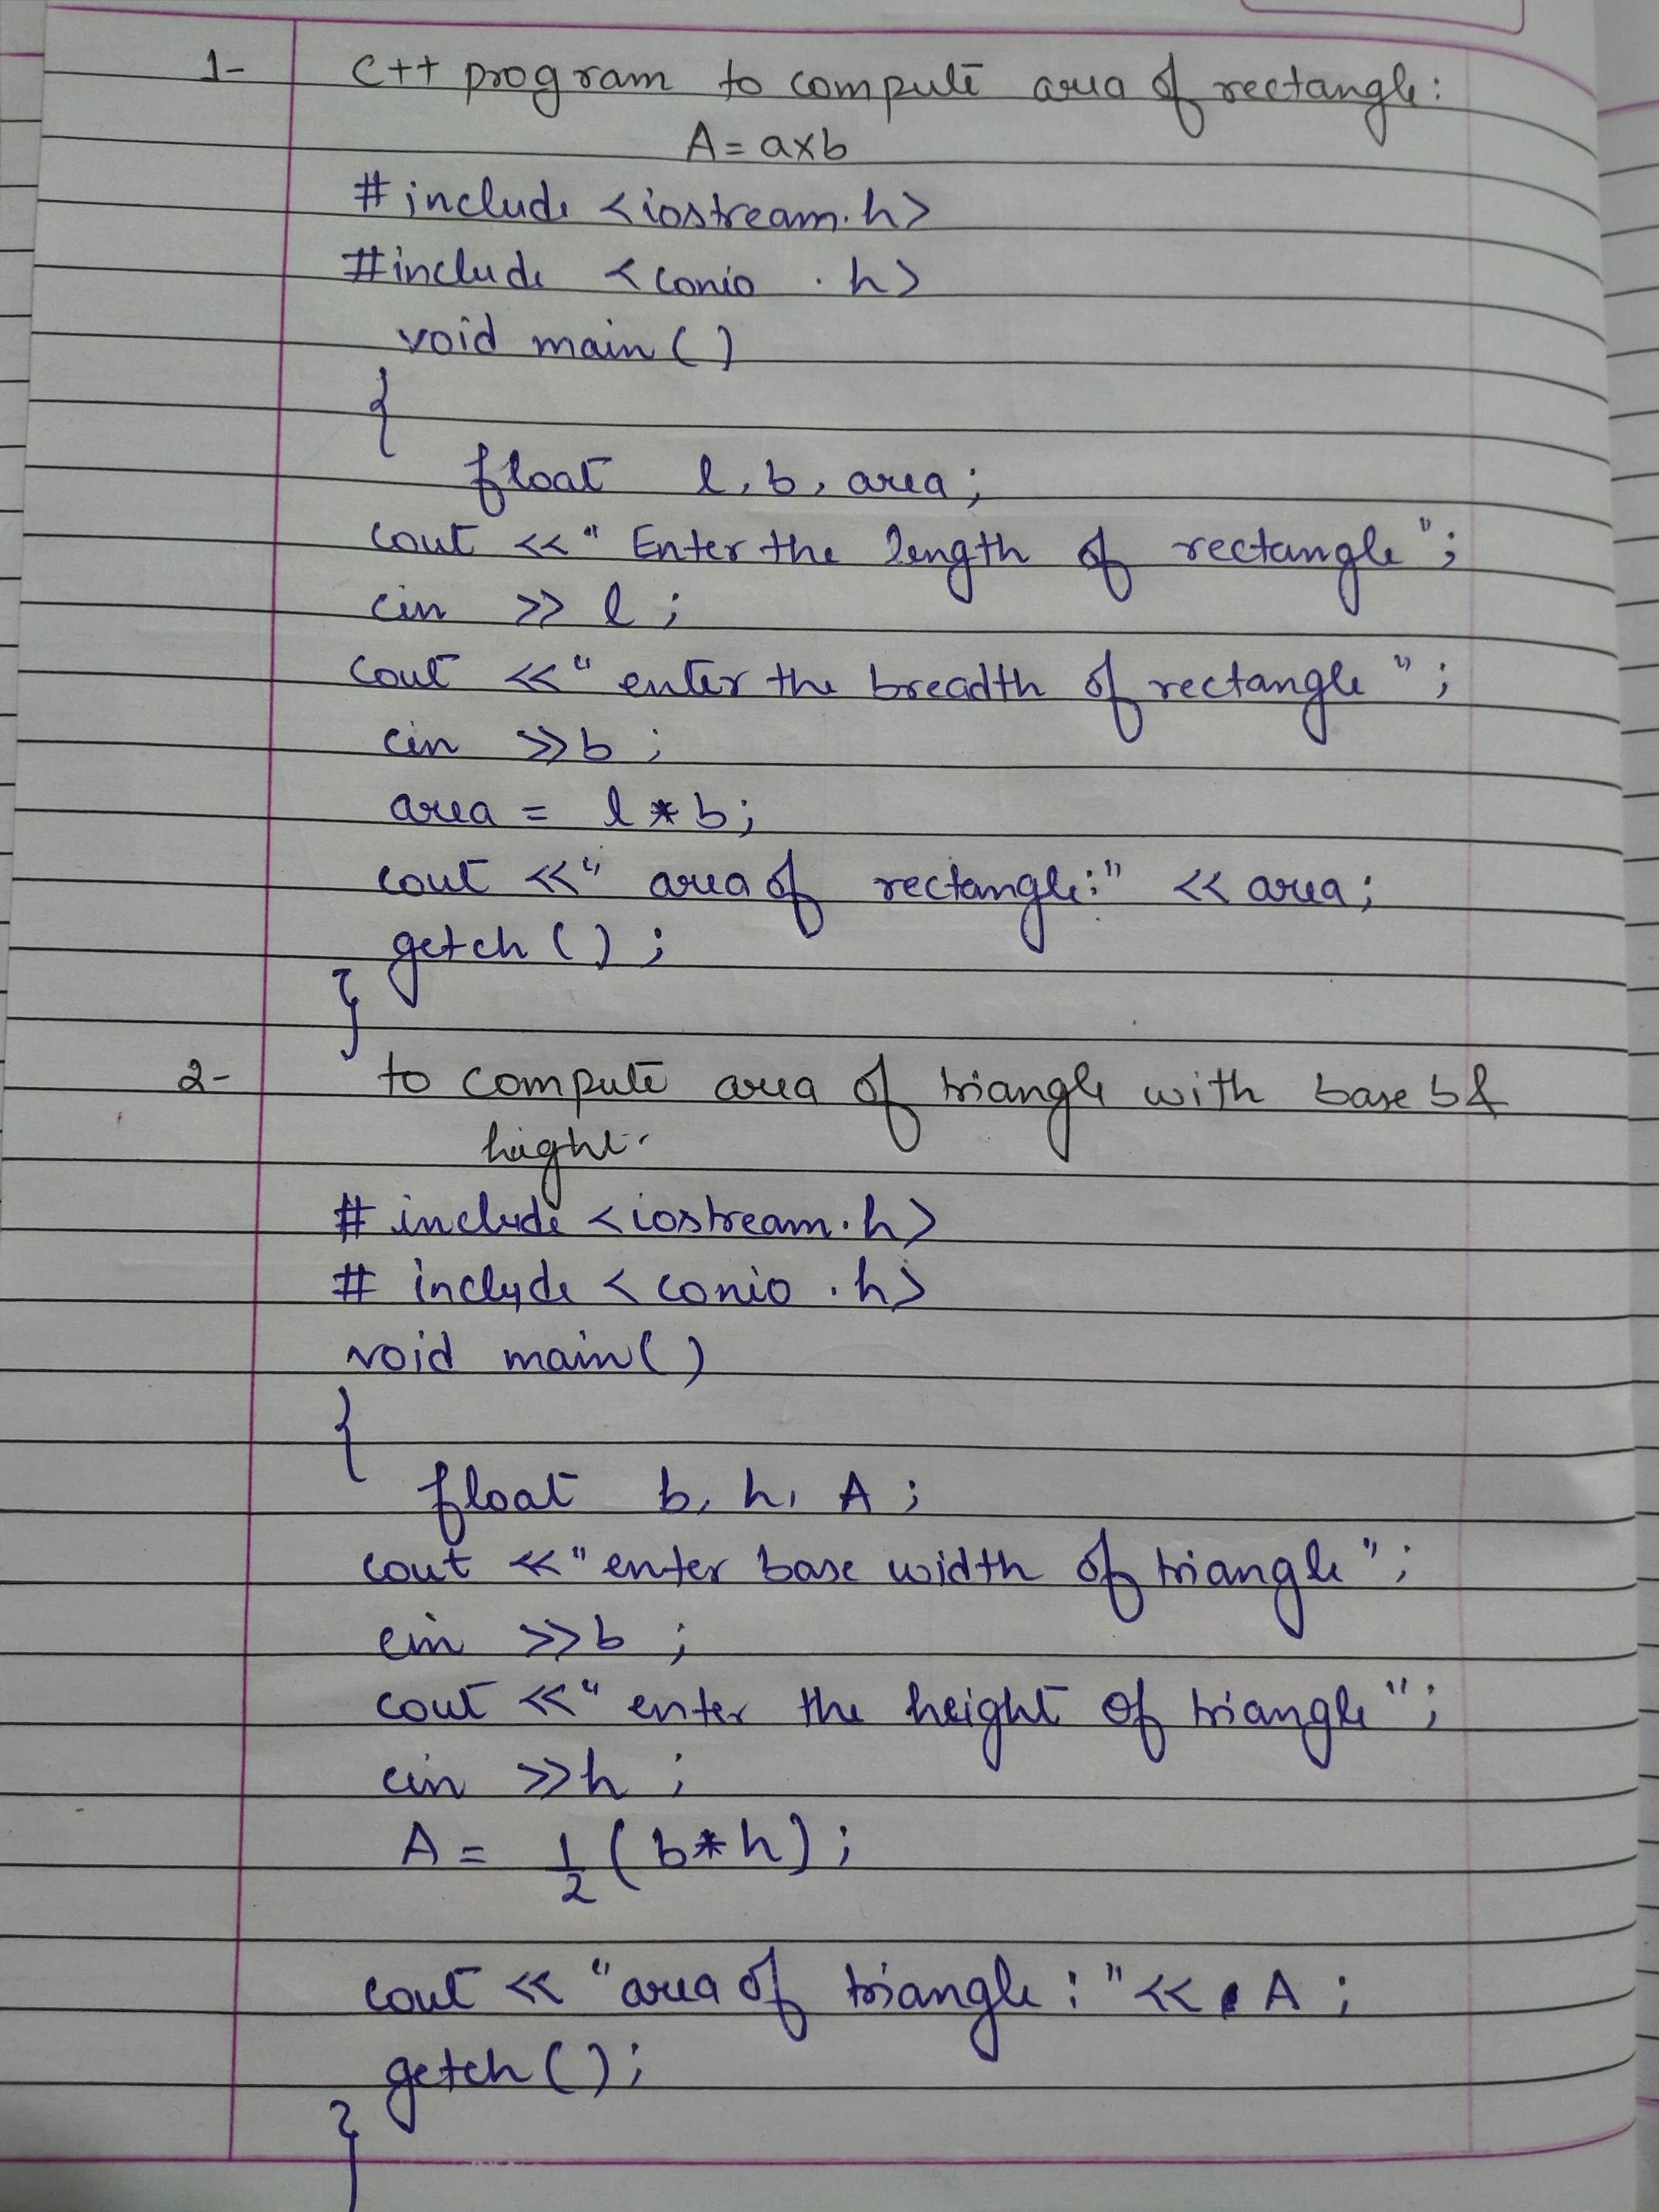 1- C++ program to compute area of rectangle:
A = a×b
# include <iostream.h>
#include <conio .h>
void main ( )
{
float l, b, area;
cout <<" Enter the length of rectangle";
cin >> l ;
cout <<" enter the breadth of rectangle ";
cin >>b ;
area = l * b;
cout <<" area of rectangle:" << area;
getch ( ) ;
}
2- to compute area of triangle with base b &
hight.
# include <iostream.h>
# include < conio .h>
void main( )
{
float b, h, A ;
cout <<" enter base width of triangle" ;
cin >>b ;
cout <<" enter the height of triangle" ;
cin >>h ;
A = 1/2 ( b*h) ;
cout << "area of triangle : "<< A ;
getch ( ) ;
}